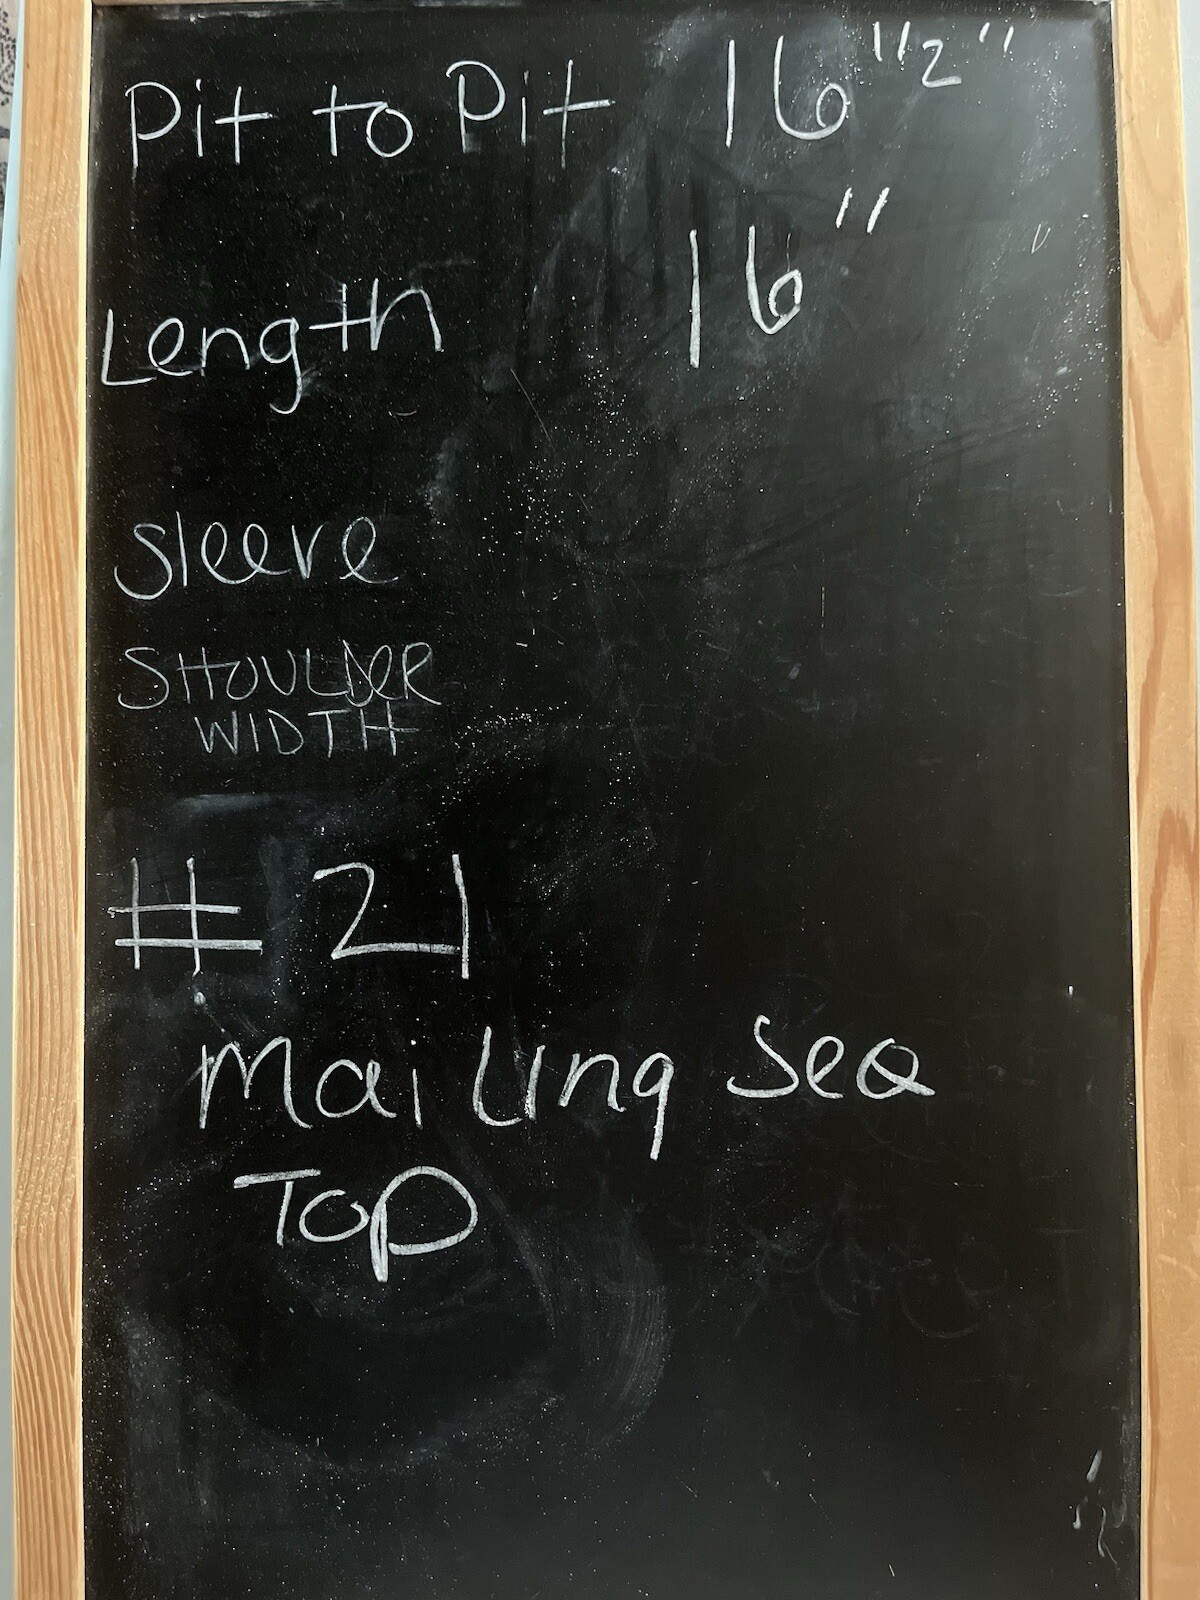 Pit to Pit 16 1/2"
Length 16"
Sleeve
SHOULDER
WIDTH
# 21
Mailing Sea
Top